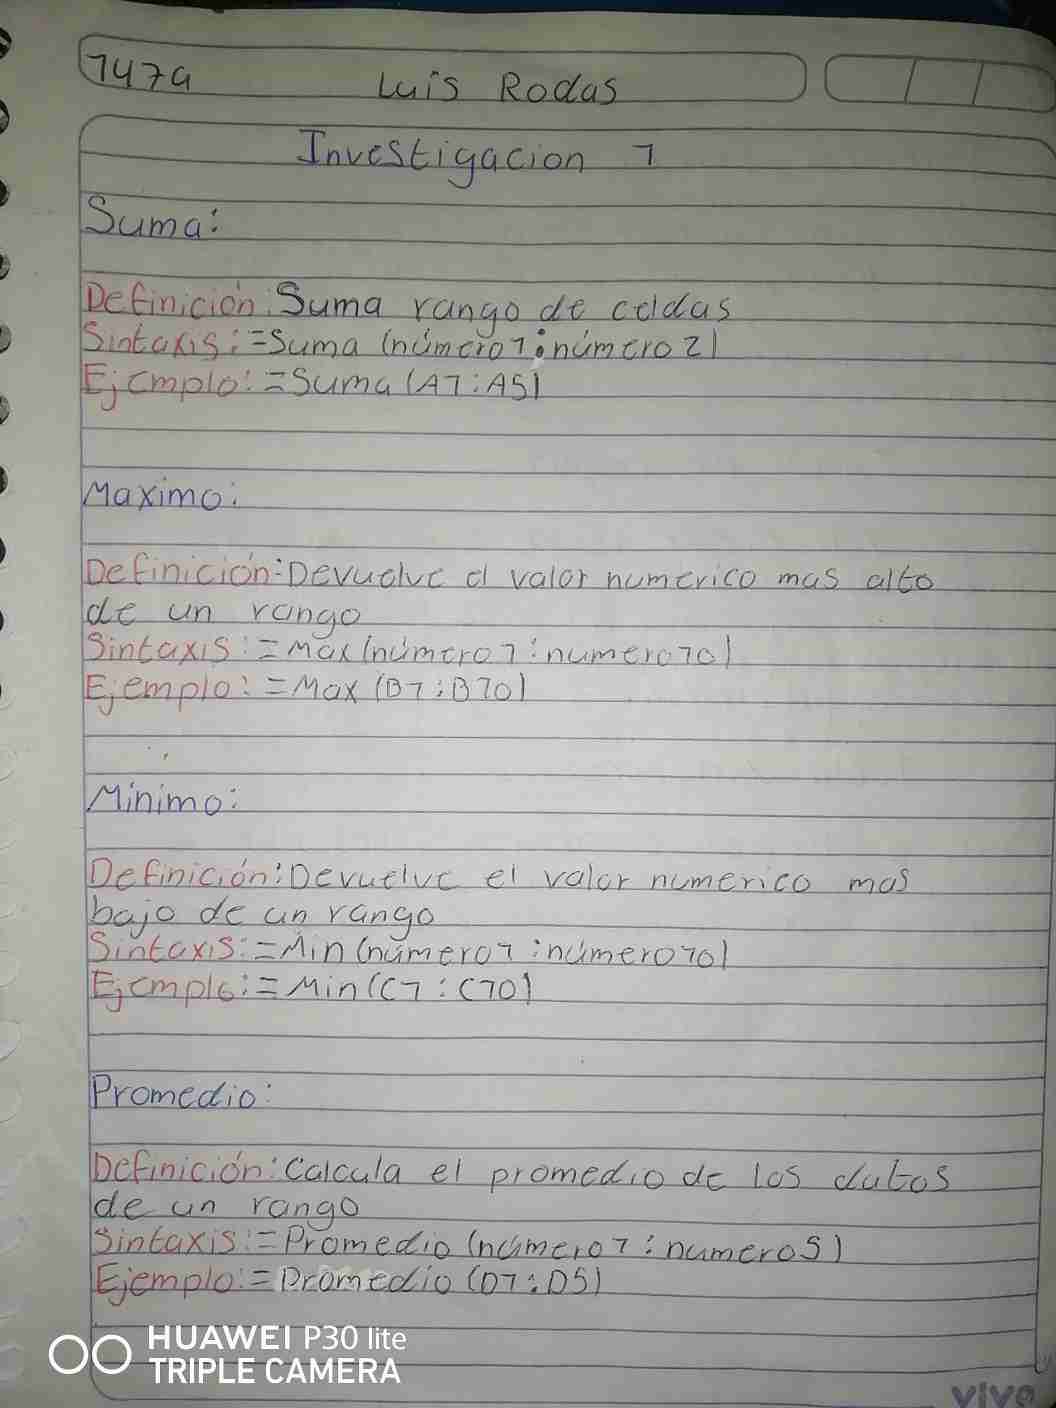 1479
Luis Rodas
Investigacion 1
Suma:
Definición: Suma rango de celdas
Sintaxis: =Suma (número1:número2)
Ejemplo: =Suma (A1:A5)
Maximo:
Definición: Devuelve el valor numerico mas alto
de un rango
Sintaxis: =Max (número1:numero10)
Ejemplo: =Max (B1:B10)
Minimo:
Definición: Devuelve el valor numerico mas
bajo de un rango
Sintaxis: =Min (número1:número10)
Ejemplo: =Min (C1:C10)
Promedio:
Definición: Calcula el promedio de los datos
de un rango
Sintaxis: =Promedio (número1:numero5)
Ejemplo: =Promedio (D1:D5)
HUAWEI P30 lite
TRIPLE CAMERA
vivo